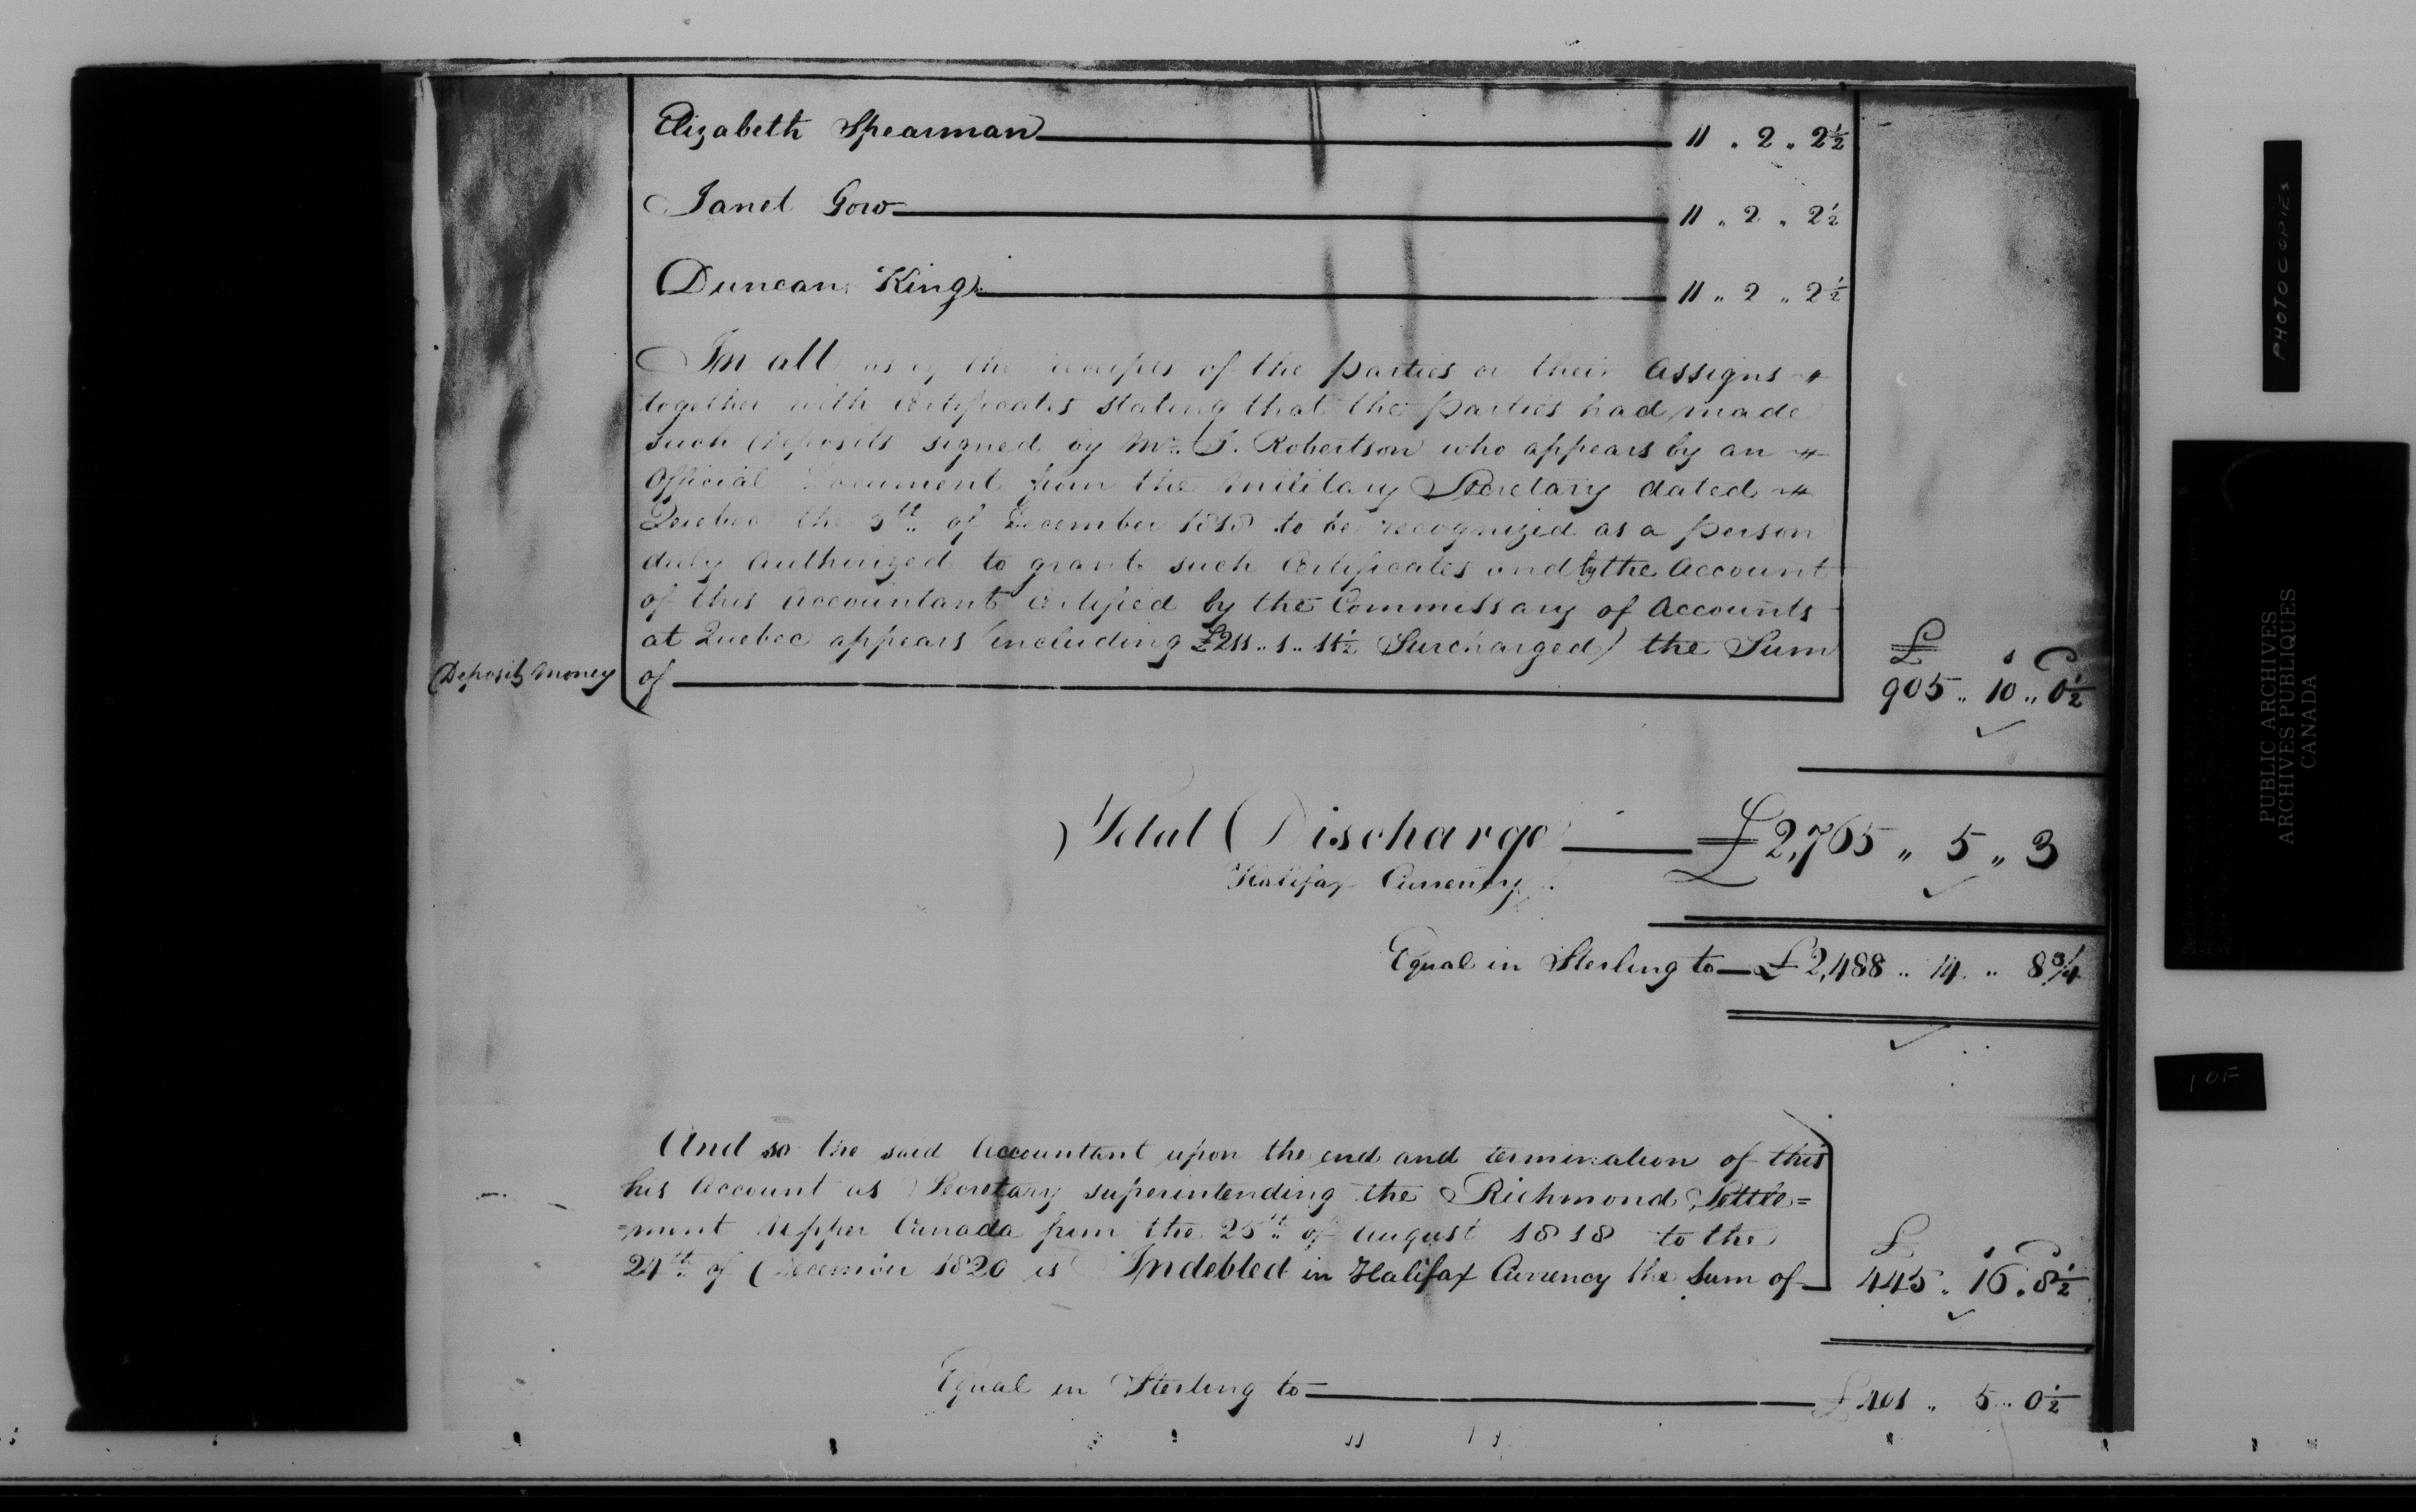 Elizabeth Spearman 11 . 2 .. 2½
Janet Gow 11 .. 2 .. 2½
Duncan King 11 .. 2 .. 2½
In all as by the receipts of the parties or their Assigns
together with Certificates stating that the parties had made
such Deposits signed by Mr. J. Robertson who appears by an
Official Document from the Military Secretary dated
Quebec the 9th of December 1818 to be recognized as a person
duly Authorized to grant such Certificates and by the Account
of this Accountant Certified by the Commissary of Accounts
at Quebec appears (including £211 .. 1 .. 11½ Surcharged) the Sum
Deposit Money of £ s D 905 .. 10 .. 0½
Total Discharge £2,765 .. 5 .. 3
Halifax Currency
Equal in Sterling to £2,488 .. 14 .. 8¾
And so the said Accountant upon the end and termination of this
his Account as Secretary superintending the Richmond Settle=
=ment Upper Canada from the 25th of August 1818 to the
24th of December 1820 is Indebted in Halifax Currency the Sum of £ s D 445 .. 16 . 8½
Equal in Sterling to £401 .. 5 .. 0½
PHOTOCOPIES
PUBLIC ARCHIVES
ARCHIVES PUBLIQUES
CANADA
1 OF